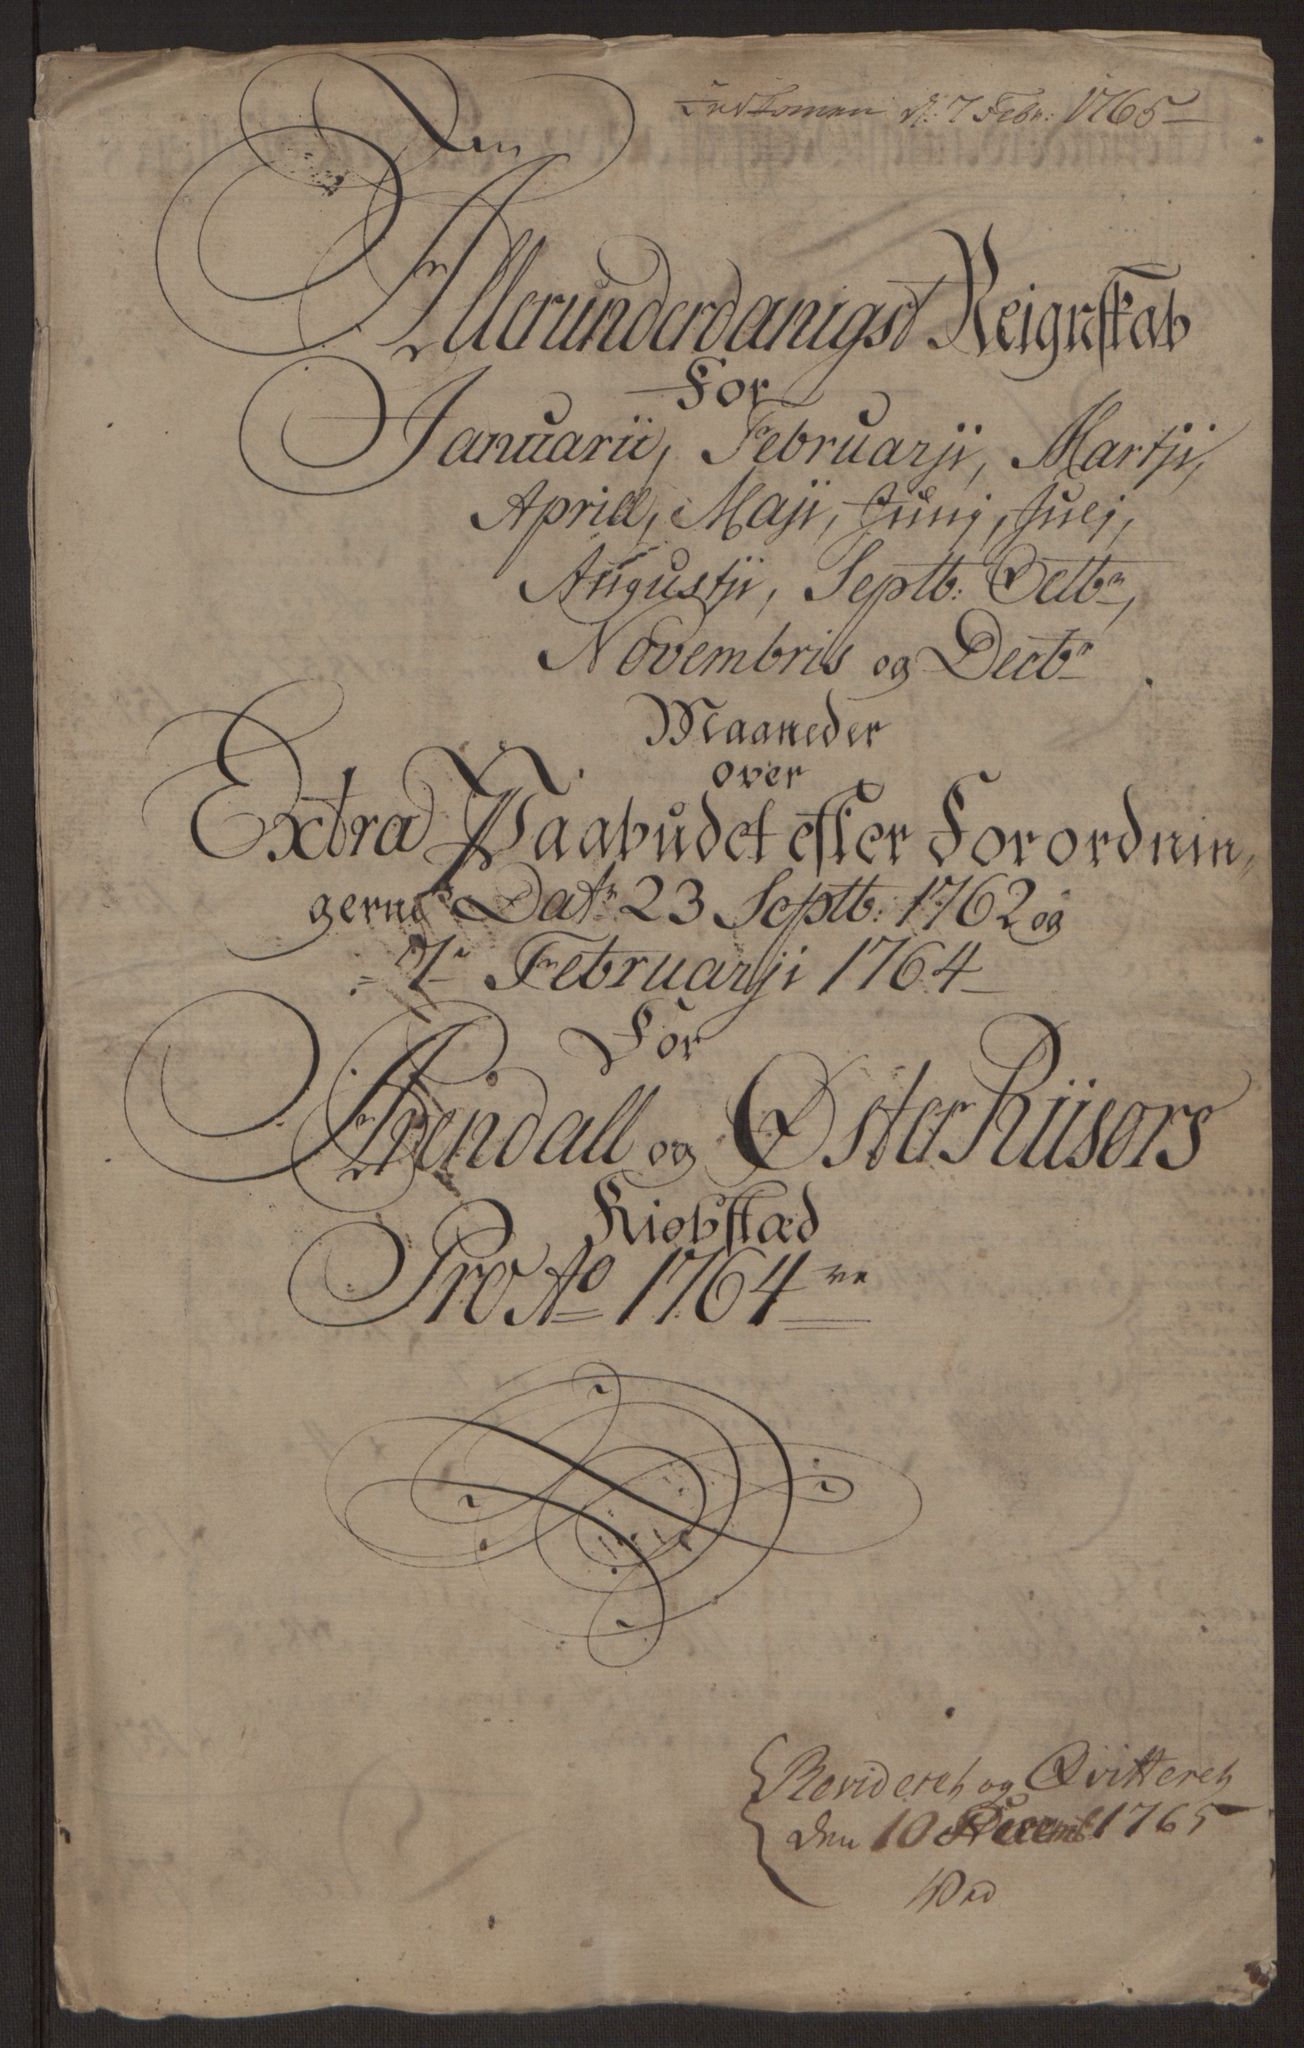 Indkomen d: 7 Febr: 1765
Een
Allerunderdanigst Reignskab
For
Januarii, Februarji, Martji,
Aprill, Maji, Junj, Julj,
Augustji, Septb: Octbr,
Novembris og Decbr
Maaneder
over
Extra Paabudet efter Forordnin,,
gerne Datr 23 Septb: 1762 og
7r Februarji 1764
For
Arendall og Øster Riisørs
Kiøbstæd
Pro Ao 1764re
Revideret og Qvitteret
den 10 Decemb 1765